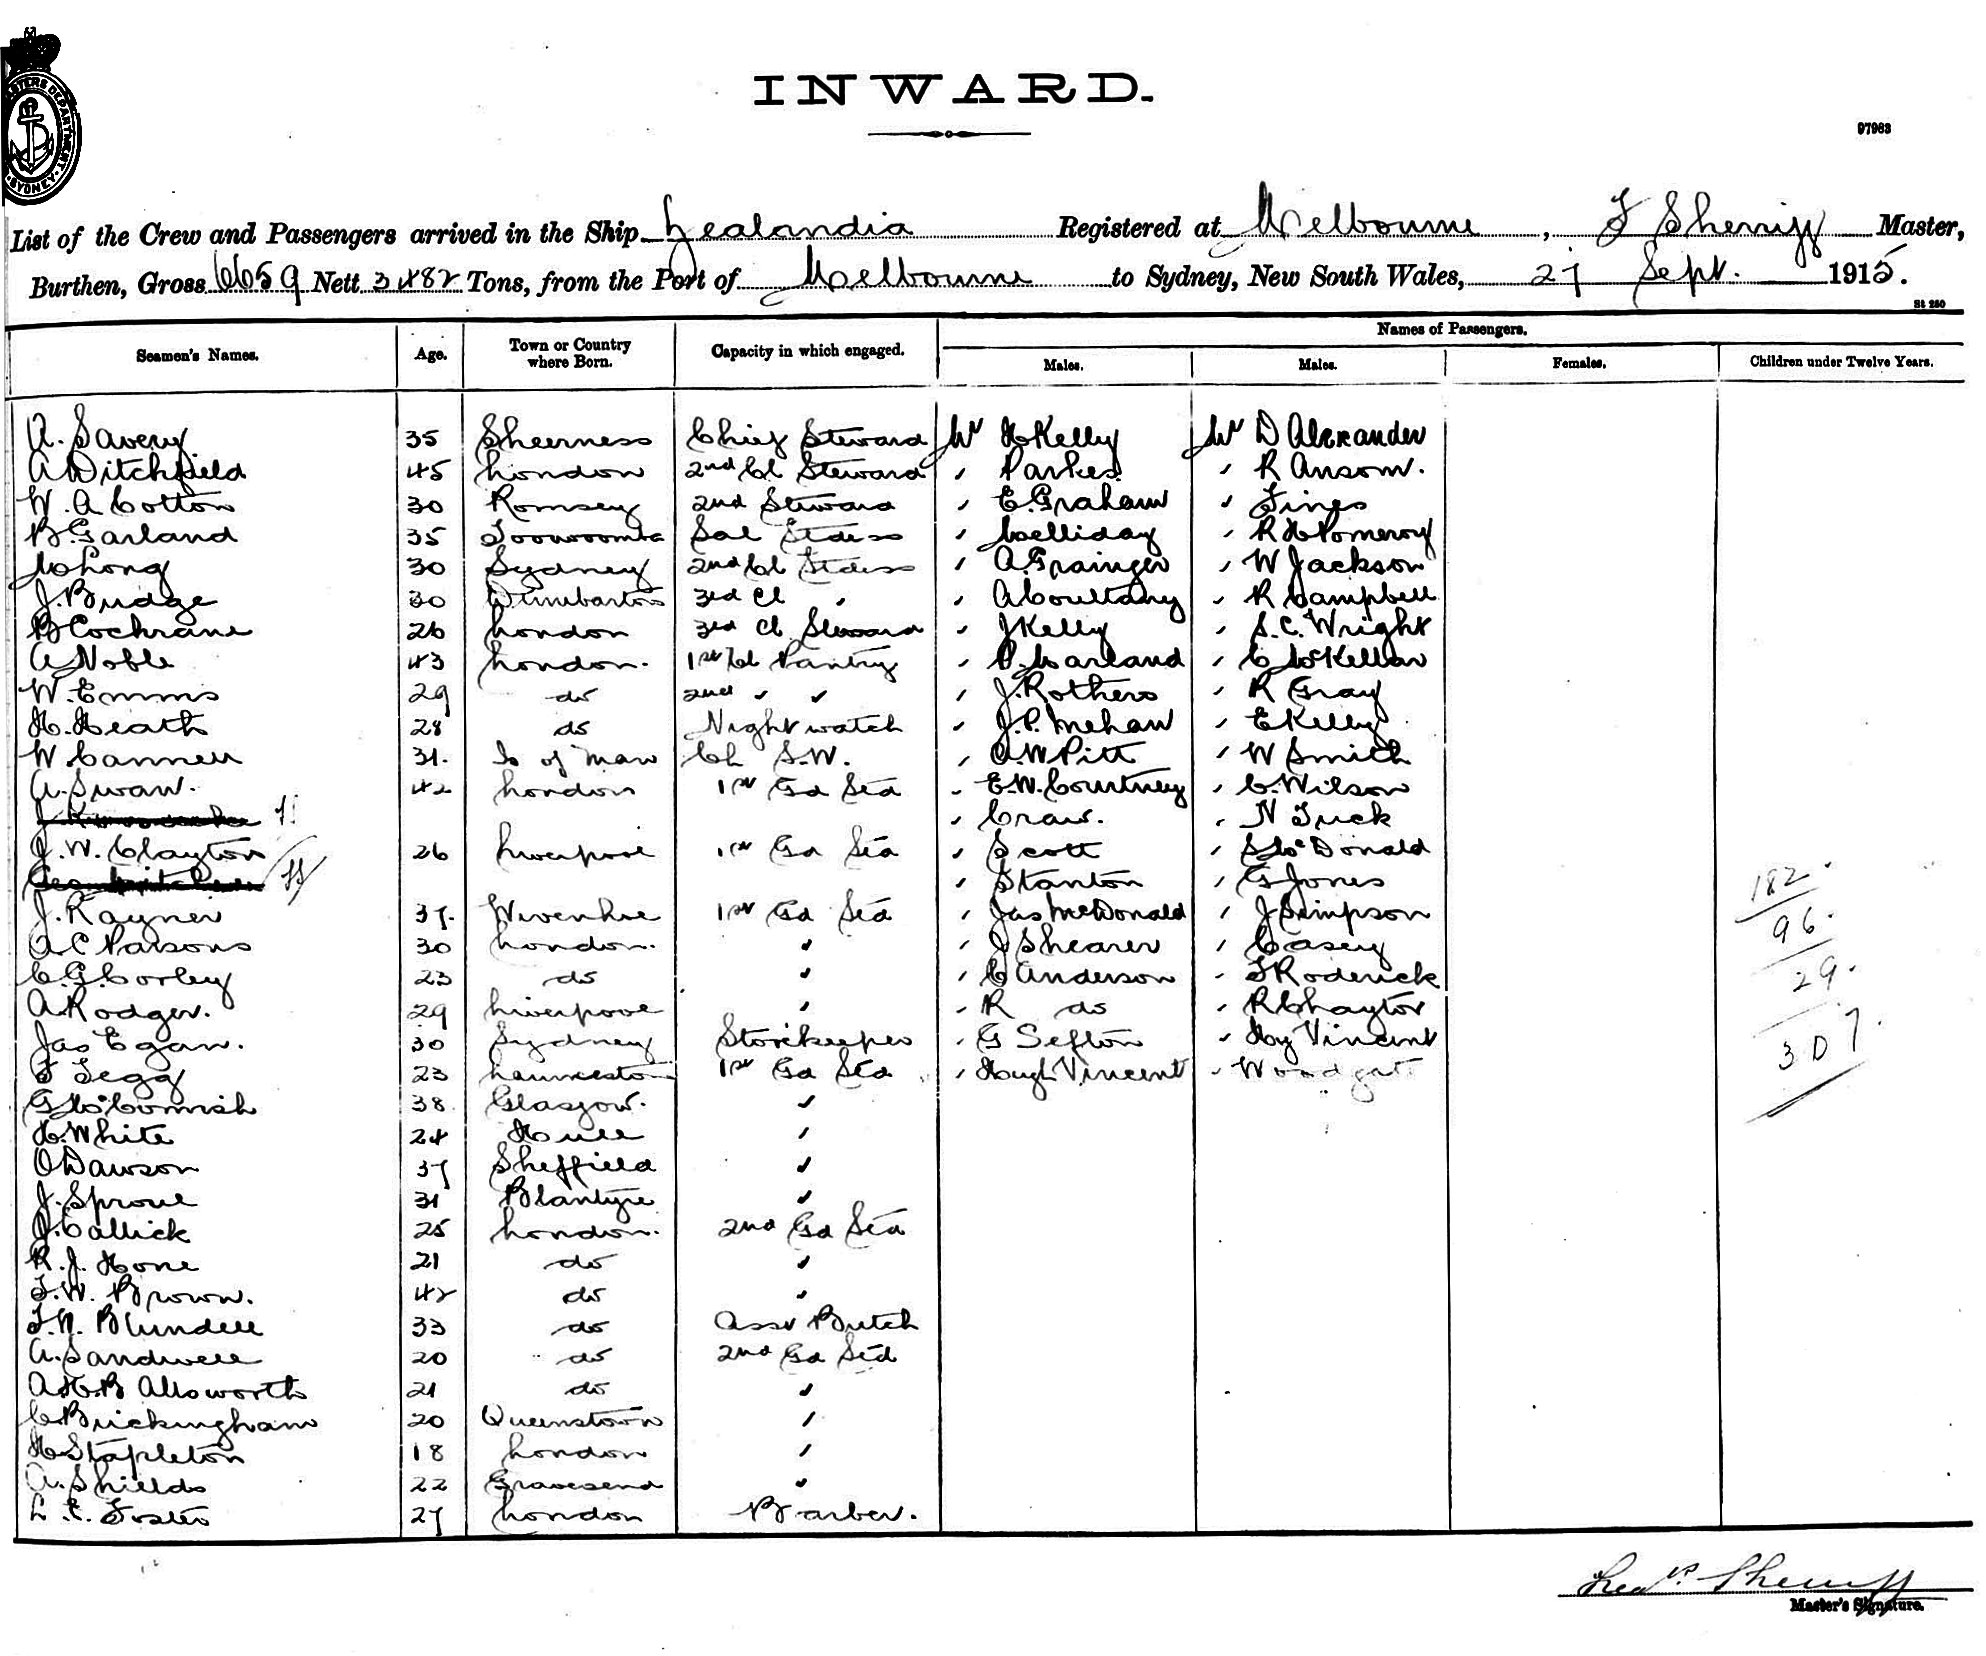 MASTERS DEPARTMENT
SYDNEY
INWARD.
97963
List of the Crew and Passengers arrived in the Ship Zealandia Registered at Melbourne, F Sherriff Master,
Burthen, Gross 6659 Nett 3482 Tons, from the Port of Melbourne to Sydney, New South Wales, 27 Sept. 1915.
St 250
Names of Passengers.
Seamen's Names. Age. Town or Country where Born. Capacity in which engaged. Males. Males. Females. Children under Twelve Years.
A. Savery 35 Sheerness Chief Steward Mr H Kelly Mr D Alexander
A Ditchfield 45 London 2nd Cl Steward " Parkes " R Ansom.
W. A Cotton 30 Romsey 2nd Steward " E. Graham " Fines
B. Garland 35 Toowoomba Sal Stdess " Celliday " R H Pomeroy
M Long 30 Sydney 2nd Cl Stdess " A. Grainger " W Jackson
J. Budge 30 Dumbarton 3rd Cl " " A Coultany " R Campbell
B Cochrane 26 London 3rd Cl Steward " J Kelly " S. C. Wright
A Noble 43 London. 1st Cl Pantry " P. Garland " C McKellar
W. Emms 29 do 2nd " " " J. Rothers " R Gray
H. Heath 28 do Night watch " J. P. Mehan " E Kelly
W Cannell 31. Is of Man Ch S.W. " A. W Pitt " W Smith
A. Swan. 42 London 1st Gd Std " E. W. Courtney " C. Wilson
" Craw. " N Tuck
J. W. Clayton 26 Liverpool 1st Gd Std " Scott " S McDonald
" Stanton " G Jones
J. Rayner 37. Wivenhoe 1st Gd Std " Jas McDonald " J Simpson
A C Parsons 30 London. " " J Shearer " Casey
C. G. Corley 23 do " " C Anderson " F Roderick
A. Rodger. 29 Liverpool " " R do " R Chaytor
Jas Egan. 30 Sydney Storekeeper " G Sefton " Hoy Vincent
F Tegg 23 Launceston 1st Gd Std " Hugh Vincent " Woodgate
G McCormish 38 Glasgow. "
H. White 24 Hull "
O Dawson 37 Sheffield "
J. Sproul 31 Blantyre "
J. Callick 25 London. 2nd Gd Std
R. J. Hone 21 do "
F. W. Brown. 42 do "
F. W. Blundell 33 do Asst Butch
A. Sandwell 20 do 2nd Gd Std
A. H. B Allsworth 21 do "
C. Buckingham 20 Queenstown "
H Stapleton 18 London "
A. Shields 22 Gravesend "
L. E. Foster 27 London Barber.
182.
96.
29.
307.
Sherriff
Master's Signature.